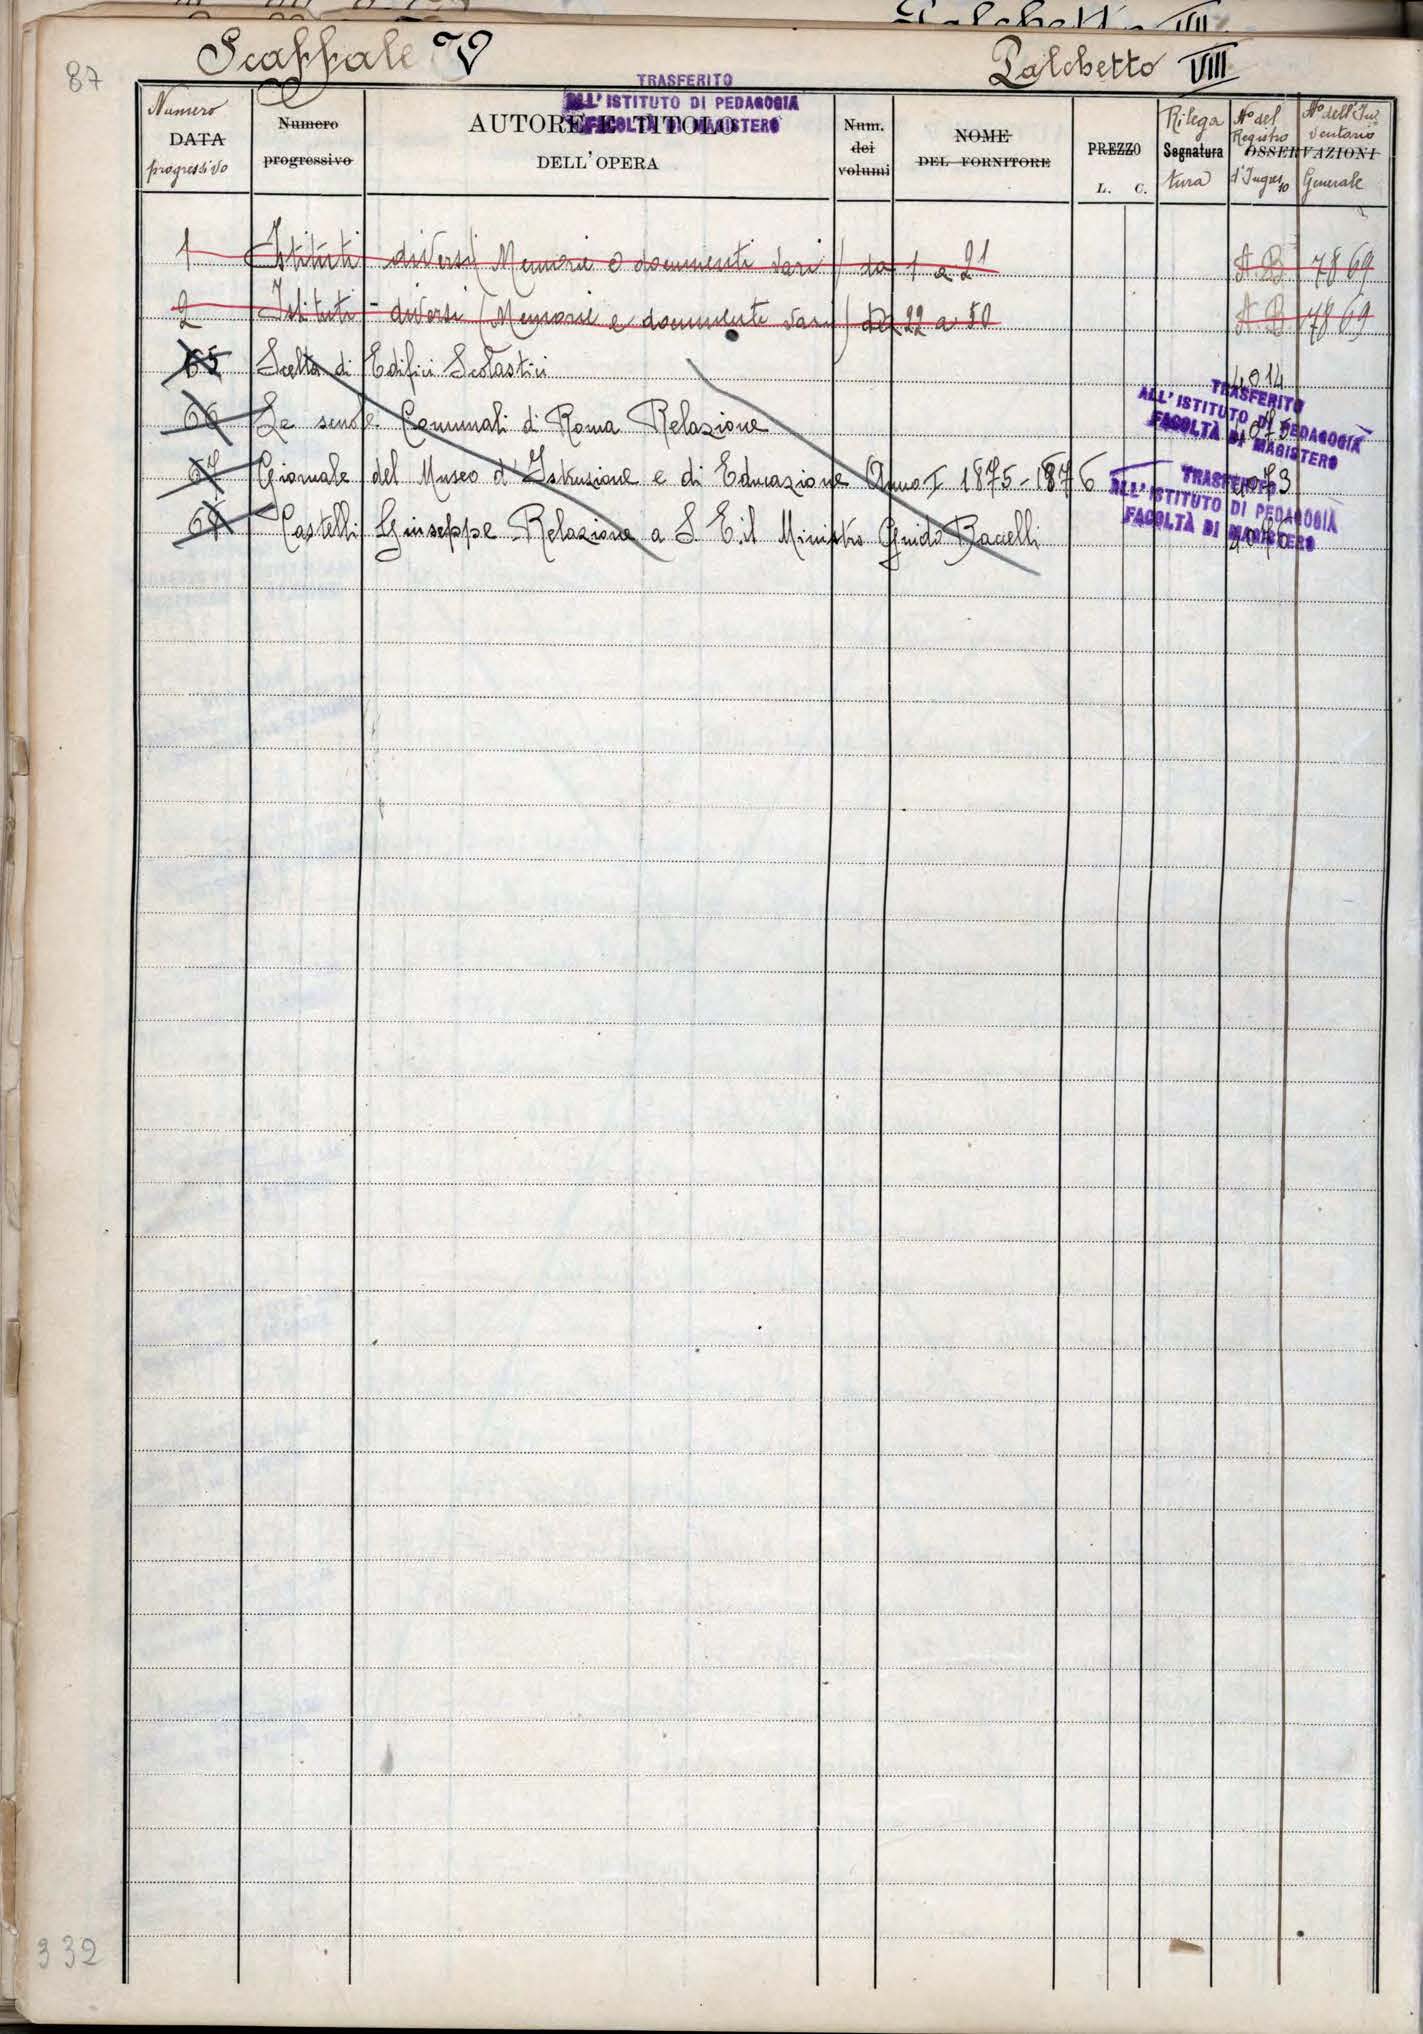 Palchetto VII
87
Scaffale V
Palchetto VIII
TRASFERITO
ALL'ISTITUTO DI PEDAGOGIA
FACOLTÀ DI MAGISTERO
Numero
DATA
progressivo
Numero
progressivo
AUTORE E TITOLO
DELL'OPERA
Num.
dei
volumi
NOME
DEL FORNITORE
PREZZO
L. C.
Rilega
Segnatura
tura
No del
Registro
d'Ingresso
No dell'Inv
ventario
OSSERVAZIONI
Generale
1 Istituti diversi (Memorie e documenti vari) da 1 a 21 A.B. 7869
2 Istituti - diversi (Memorie e documenti vari) da 22 a 50 A.B. 7869
65 Scelta di Edifici Scolastici 4014
66 Le scuole Comunali di Roma Relazione
TRASFERITO
ALL'ISTITUTO DI PEDAGOGIA
FACOLTÀ DI MAGISTERO
67 Giornale del Museo d'Istruzione e di Educazione Anno I 1875-1876
TRASFERITO
ALL'ISTITUTO DI PEDAGOGIA
FACOLTÀ DI MAGISTERO
Castelli Giuseppe - Relazione a S. E. il Ministro Guido Baccelli
332